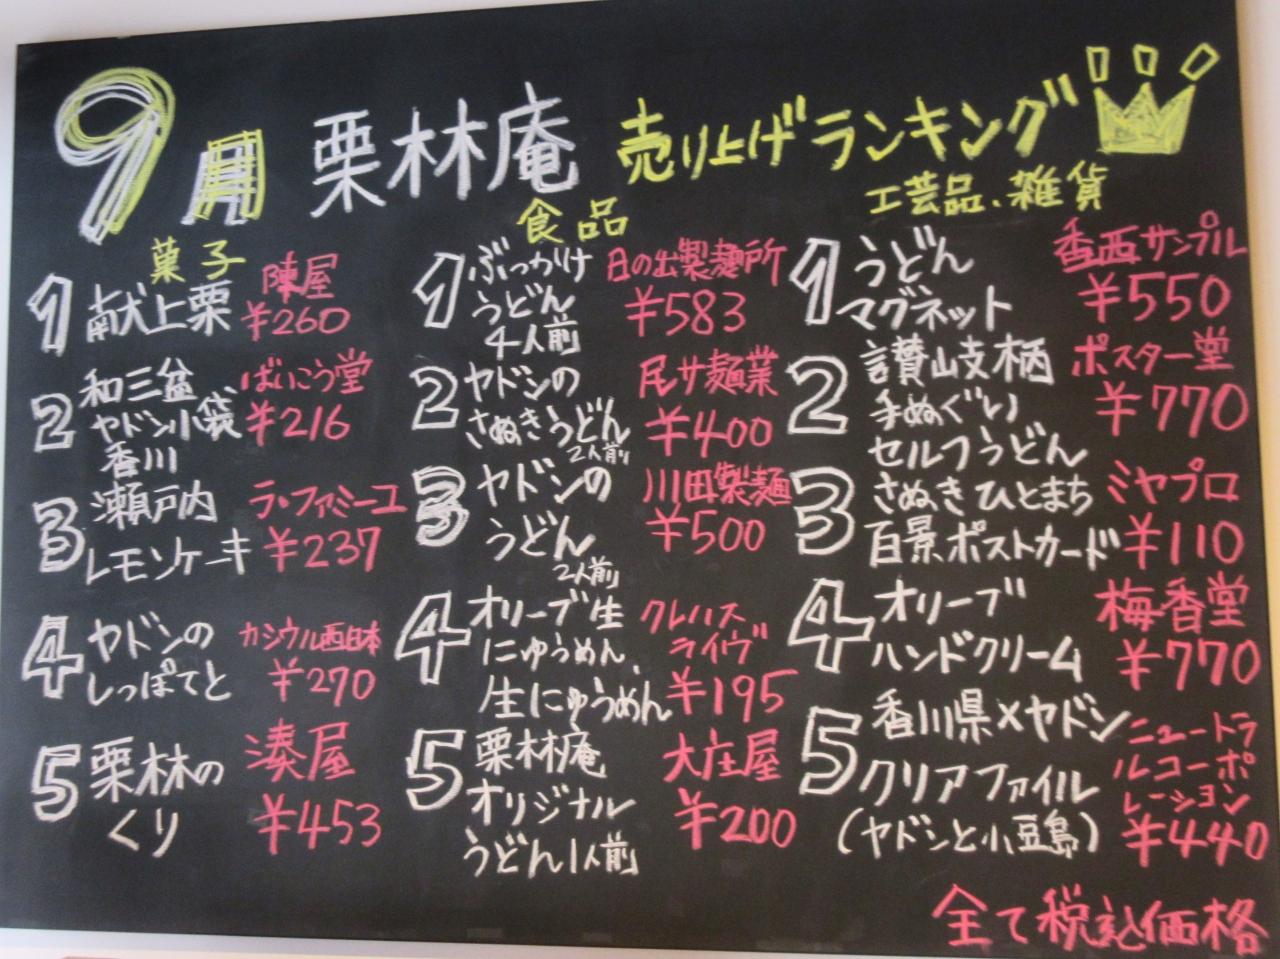 9月 栗林庵 売り上げランキング
菓子
1 献上栗 陣屋 ¥260
2 和三盆 ばいこう堂
ヤドン小袋 ¥216
香川
3 瀬戸内 ラ・ファミーユ
レモンケーキ ¥237
4 ヤドンの カシウル西日本
しっぽてと ¥270
5 栗林の 湊屋
くり ¥453
食品
1 ぶっかけ 日の出製麺所
うどん ¥583
4人前
2 ヤドンの 民サ麺業
さぬきうどん ¥400
2人前
3 ヤドンの 川田製麺
うどん ¥500
2人前
4 オリーブ生 クレハス
にゅうめん、 ライヴ
生にゅうめん ¥195
5 栗林庵 大庄屋
オリジナル ¥200
うどん1人前
工芸品、雑貨
1 うどん 香西サンプル
マグネット ¥550
2 讃岐柄 ポスター堂
手ぬぐい ¥770
セルフうどん
3 さぬきひとまち ミヤプロ
百景ポストカード ¥110
4 オリーブ 梅香堂
ハンドクリーム ¥770
5 香川県×ヤドン ニュートラ
クリアファイル ルコーポ
レーション
(ヤドンと小豆島) ¥440
全て税込価格